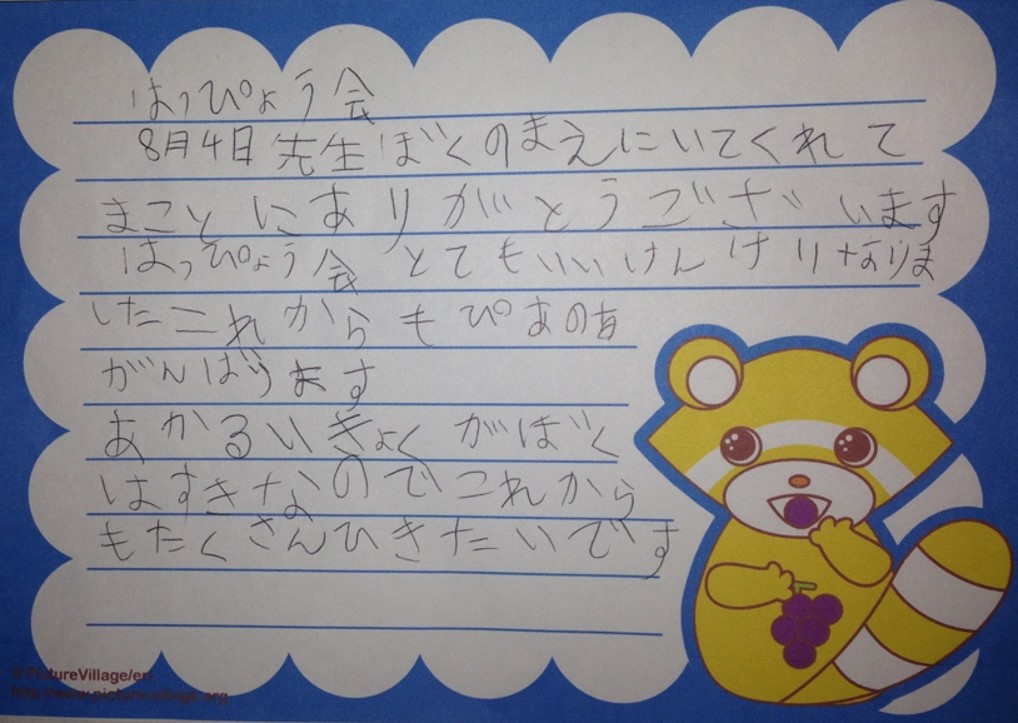 はっぴょう会
8月4日先生ぼくのまえにいてくれて
まことにありがとうございます
はっぴょう会とてもいいけんけりなりま
したこれからもぴあのあ
がんばります
あかるいきょくがぼく
はすきなのでこれから
もたくさんひきたいです
© PictureVillage/eri
http://www.picture-village.org